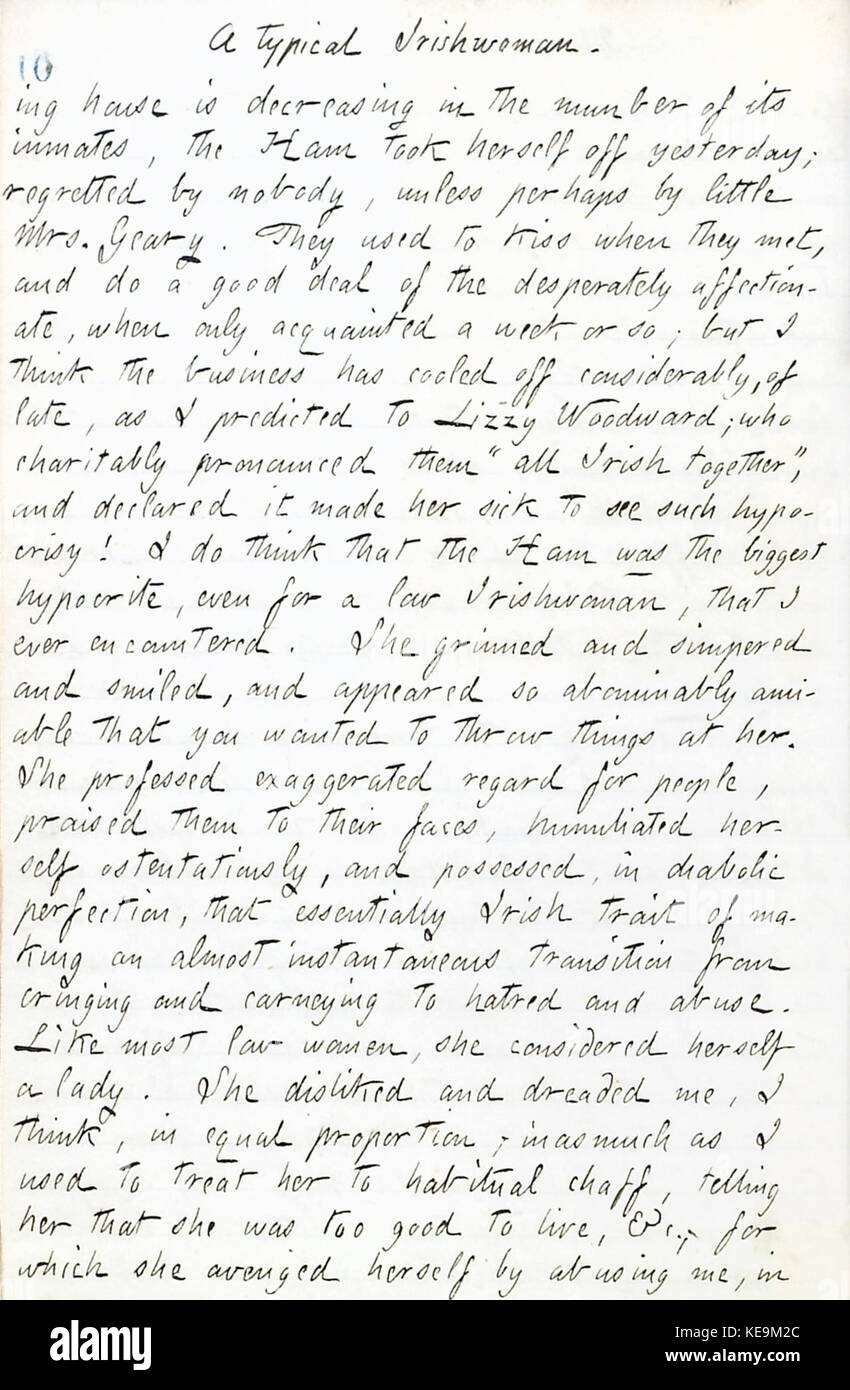 A typical Irishwoman.
10
ing house is decreasing in the number of its
inmates, the Ham took herself off yesterday;
regretted by nobody, unless perhaps by little
Mrs. Geary. They used to kiss when they met,
and do a good deal of the desperately affection-
ate, when only acquainted a week or so; but I
think the business has cooled off considerably, of
late, as I predicted to Lizzy Woodward; who
charitably pronounced them "all Irish together",
and declared it made her sick to see such hypo-
crisy! I do think that the Ham was the biggest
hypocrite, even for a low Irishwoman, that I
ever encountered. She grinned and simpered
and smiled, and appeared so abominably ami-
able that you wanted to throw things at her.
She professed exaggerated regard for people,
praised them to their faces, humiliated her-
self ostentatiously, and possessed, in diabolic
perfection, that essentially Irish trait of ma-
king an almost instantaneous transition from
cringing and carneying to hatred and abuse.
Like most low women, she considered herself
a lady. She disliked and dreaded me, I
think, in equal proportion; inasmuch as I
used to treat her to habitual chaff, telling
her that she was too good to live, &c.; for
which she avenged herself by abusing me, in
alamy
Image ID: KE9M2C
www.alamy.com